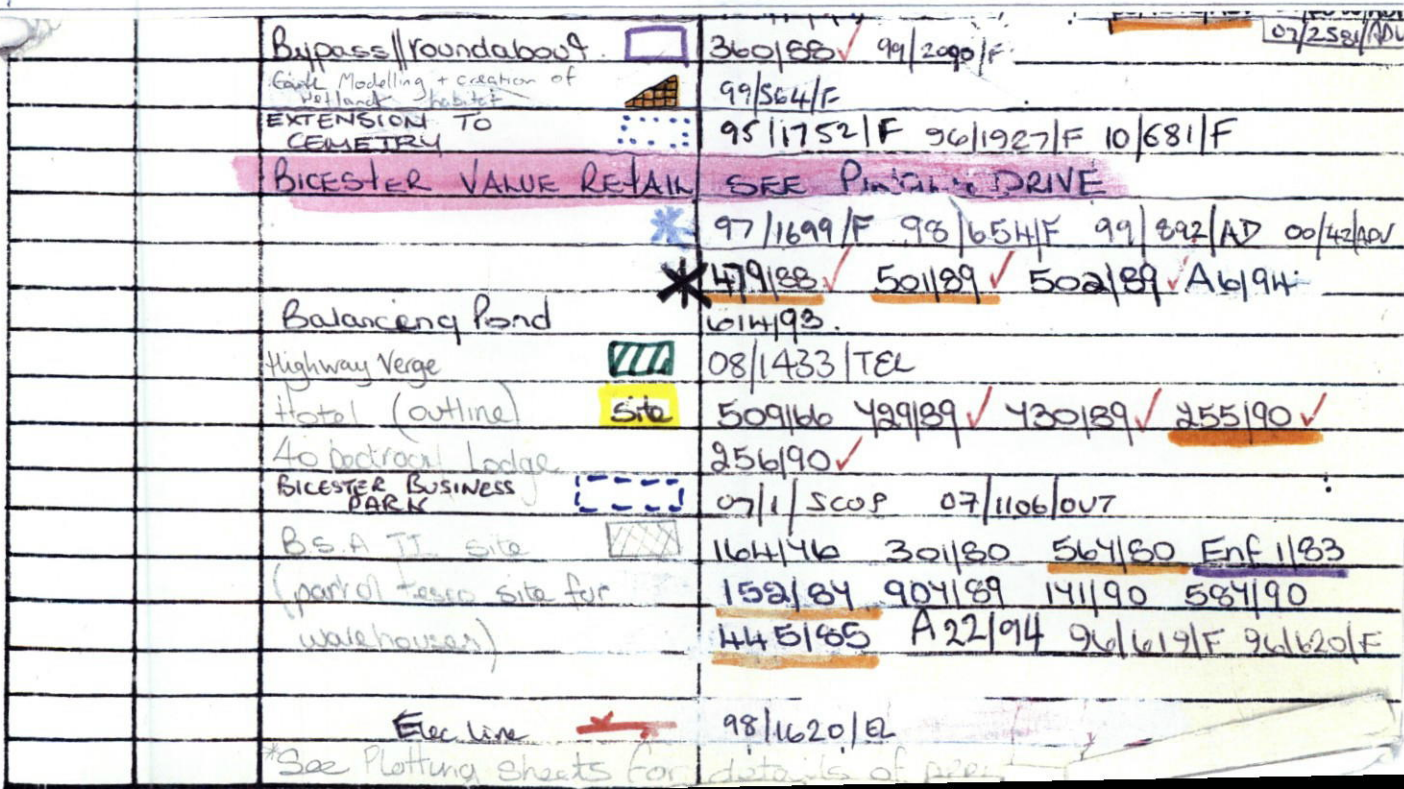 07/2584/ADV
Bypass//roundabout. 360/88✓ 99/2090/F
Modelling + creation of
wetland habitat 99/564/F
EXTENSION TO
CEMETRY 95/1752/F 96/1927/F 10/681/F
BICESTER VALUE RETAIL SEE DRIVE
* 97/1699/F 98/654/F 99/892/AD 00/42/ADV
* 479/88✓ 501/89✓ 502/89✓ A6/94
Balancing Pond 614/93.
Highway Verge 08/1433/TEL
Hotel (outline) Site 509/66 429/89✓ 430/89✓ 255/90✓
40 bedroom Lodge 256/90✓
BICESTER BUSINESS
PARK 07/1/SCOP 07/1106/OUT
B.S.A TI site 164/76 301/80 564/80 Enf 1/83
(part of tesco site for 152/84 904/89 141/90 584/90
warehouses) 445/85 A22/94 96/619/F 96/620/F
Elec Line 98/1620/EL
*See Plotting sheets for details of